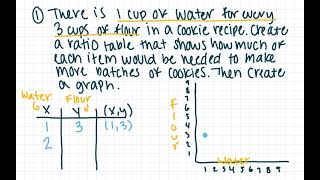 ① There is 1 cup of water for every
3 cups of flour in a cookie recipe. Create
a ratio table that shows how much of
each item would be needed to make
more batches of cookies. Then create
a graph.
Water Flour
X Y (x,y)
1 3 (1,3)
2
Flour
9
8
7
6
5
4
3
2
1
Water
1 2 3 4 5 6 7 8 9